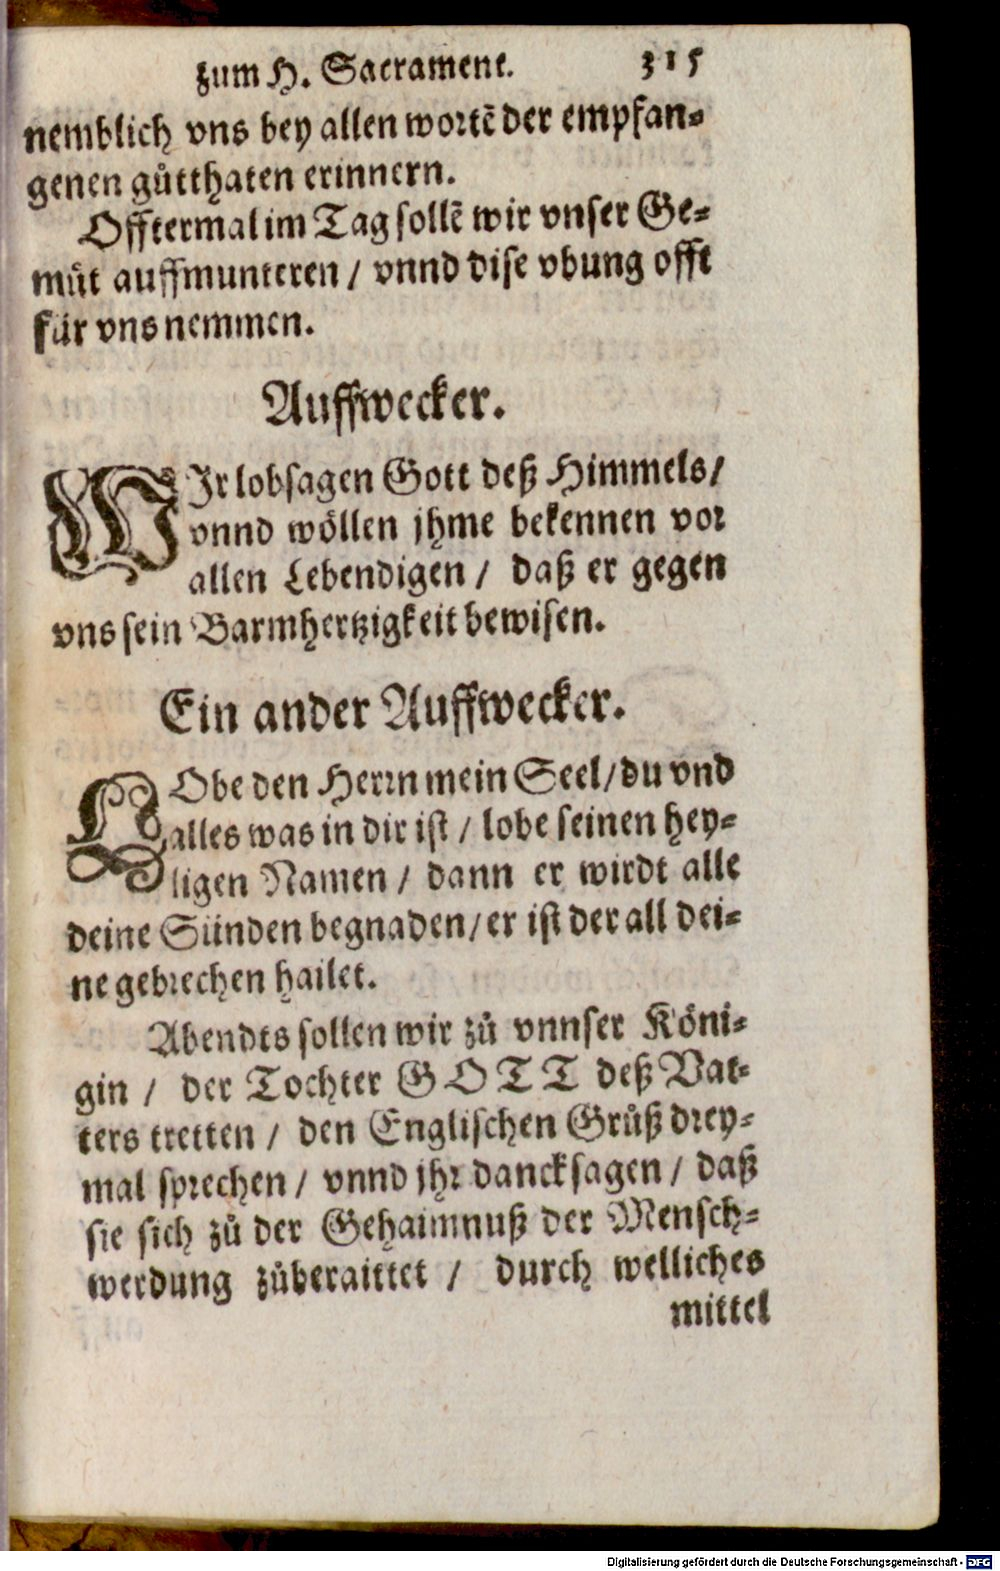 zum H. Sacrament. 315
nemblich vns bey allen wortẽ der empfan⸗
genen gůtthaten erinnern.
Offtermal im Tag sollẽ wir vnser Ge⸗
müt auffmunteren / vnnd dise vbung offt
für vns nemmen.
Auffwecker.
WIr lobsagen Gott deß Himmels/
vnnd wöllen jhme bekennen vor
allen Lebendigen / daß er gegen
vns sein Barmhertzigkeit bewisen.
Ein ander Auffwecker.
LObe den Herrn mein Seel/du vnd
alles was in dir ist / lobe seinen hey⸗
ligen Namen / dann er wirdt alle
deine Sünden begnaden/er ist der all dei⸗
ne gebrechen hailet.
Abendts sollen wir zů vnnser Köni⸗
gin / der Tochter GOTT deß Vat⸗
ters tretten / den Englischen Grůß drey⸗
mal sprechen / vnnd jhr dancksagen / daß
sie sich zů der Gehaimnuß der Mensch⸗
werdung zůberaittet / durch welliches
mittel
Digitalisierung gefördert durch die Deutsche Forschungsgemeinschaft - DFG